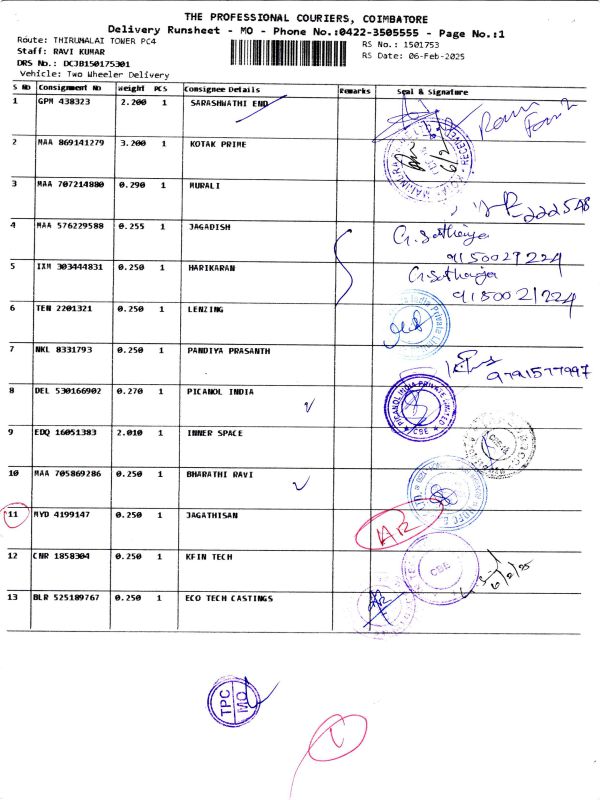 THE PROFESSIONAL COURIERS, COIMBATORE
Delivery Runsheet - MO - Phone No.:0422-3505555 - Page No.:1
Route: THIRUMALAI TOWER PC4
RS No.: 1501753
Staff: RAVI KUMAR
RS Date: 06-Feb-2025
DRS No.: DCJB150175301
Vehicle: Two Wheeler Delivery
S No Consignment No Weight PCS Consignee Details Remarks Seal & Signature
1 GPM 438323 2.200 1 SARASHWATHI END
2 MAA 869141279 3.200 1 KOTAK PRIME
3 MAA 707214880 0.290 1 MURALI
4 MAA 576229588 0.255 1 JAGADISH G. Sathiya
9150027224
5 IXM 303444831 0.250 1 HARIKARAN G. Sathiya
6 TEN 2201321 0.250 1 LENZING
7 NKL 8331793 0.250 1 PANDIYA PRASANTH
9791577997
8 DEL 530166902 0.270 1 PICANOL INDIA PICANOL INDIA PRIVATE LIMITED CBE
9 EDQ 16051383 2.010 1 INNER SPACE
10 MAA 705869286 0.250 1 BHARATHI RAVI
11 MYD 4199147 0.250 1 JAGATHISAN AR
12 CNR 1858304 0.250 1 KFIN TECH CBE
13 BLR 525189767 0.250 1 ECO TECH CASTINGS
TPC
MO